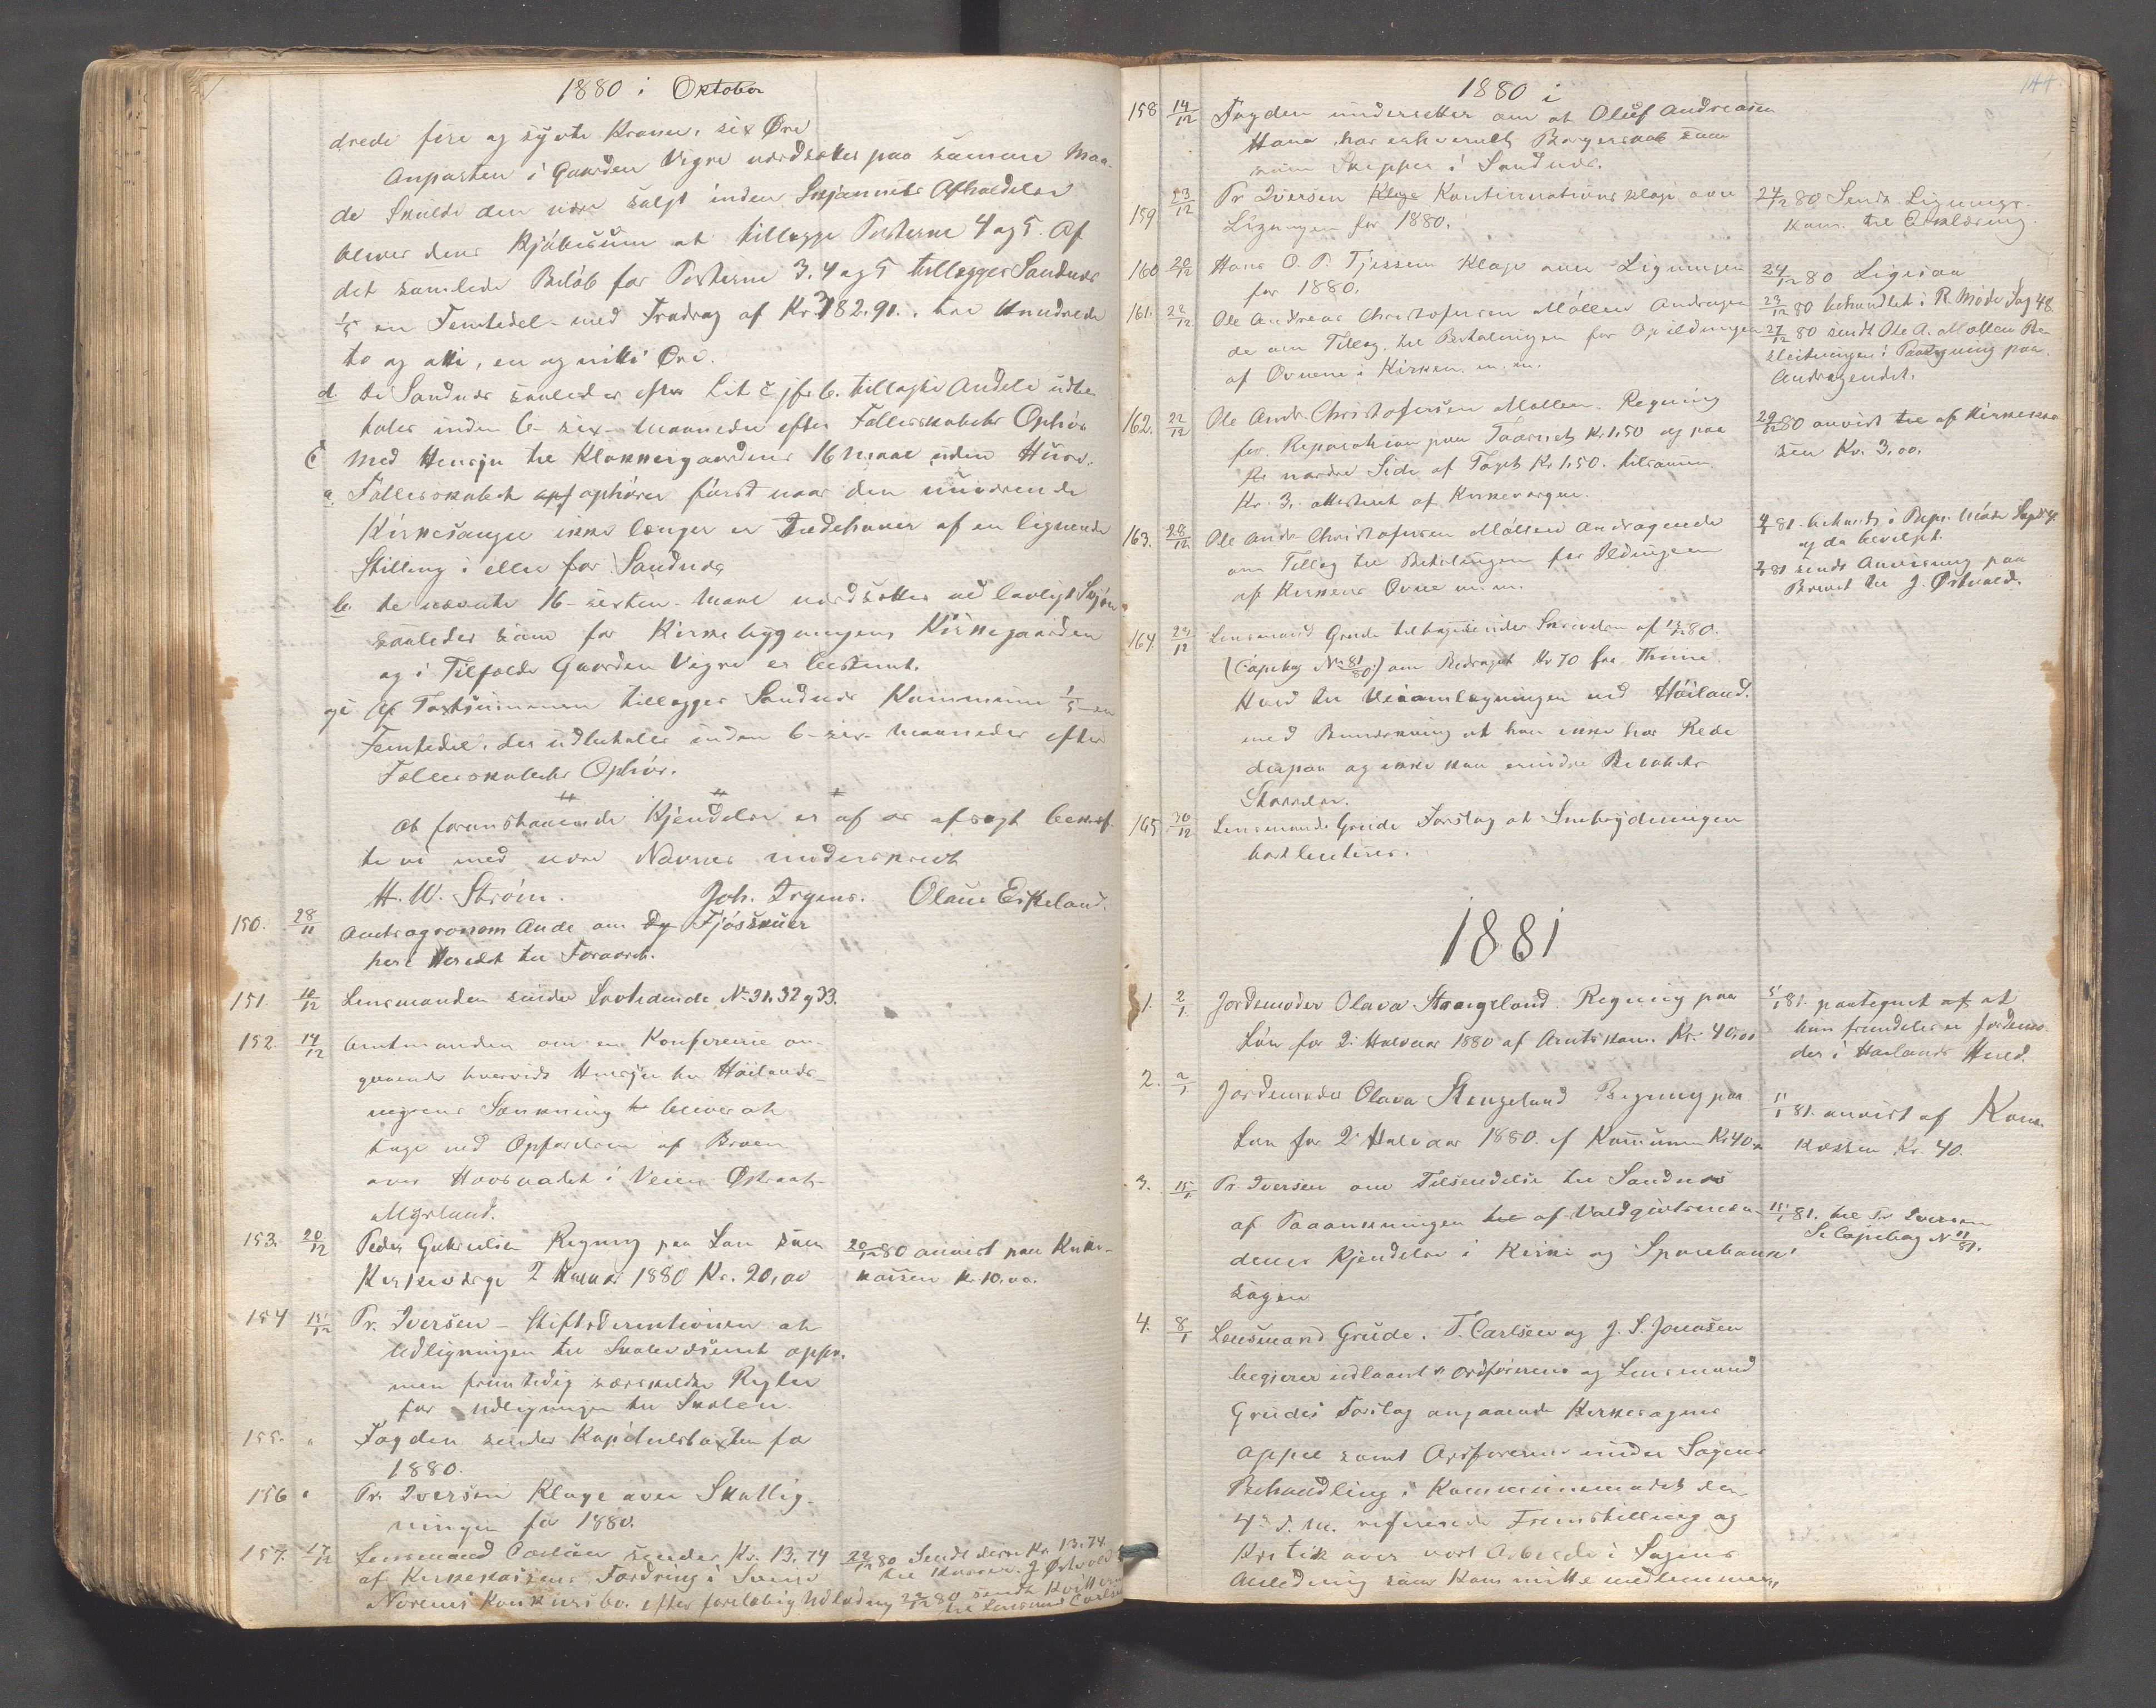 1880 i Oktober
drede fire og syvti Kroner, six Øre
Anparten i Gaarden Vigre værdsættes paa samme Maa-
de Skulde den være solgt inden Skjønnets Afholdelse
bliver dens Kjøbesum at tillægge Posterne 4 og 5. Af
det samlede Beløb for Posterne 3. 4 og 5 tillægges Sandnæs
1/5 en Femtedel med Fradrag af Kr. 382.91. tre Hundrede
to og otti, en og nitti Øre.
d. de Sandnæs saaledes efter Lit c jfr b. tillagte Andele udbe
tales inden 6 - sex - Maaneder efter Fællesskabets Ophør
C Med Hensyn til Klokkergaardens 16 Maal uden Huse.
a. Fællesskabet ophører først naar den nuværende
Kirkesanger ikke længer er Indehaver af en lignende
Stilling i eller for Sandnæs
b. de nævnte 16 - sexten - Maal værdsættes ved lovligt Skjøn
saaledes som for Kirkebygningen Kirkegaarden
og i Tilfælde Gaarden Vigre er bestemt.
og c. Af Taxtsummen tillægges Sandnæs Kommune 1/5 en
Femtedel, der udbetales inden 6 - sex - Maaneder efter
Fællesskabets Ophør.
At foranstaaende Kjendelse er af os afsagt bekræf-
te vi med vore Navnes underskrift
H. W. Strøm. Joh. Irgens. Olaus Eikeland.
150. 28/11 Amtsagronom Aude om Fjøsskuer
her i Herredet til Foraaret.
151. 10/12 Lensmanden sender Lovtidende No 31, 32 og 33.
152. 14/12 Amtmanden om en Konference an-
gaaende hvorvidt Hensyn til Høilands-
vegens Sænkning bliver at
tage ved Opførelsen af Broen
over Hovsvadet i Veien Østraat-
Myrland.
153. 20/12 Peder Gabrielsen Regning paa Løn som
Kirkeværge 2 Halvaar 1880 Kr. 20,00
20/12 80 anvist paa Kirke-
kassen Kr. 10.00.
154 15/12 Pr. Iversen - Stiftsdirektionen at
Udligningen til Skolevæsenet appr.
men fremtidig særskilte Regler
for Udligningen til Skolen.
155. " Fogden sender Kapitelstaxten for
1880.
156 " Pr. Iversen Klage over Skatlig-
ningen for 1880.
157. 17/12 Lensmand Carlsen sender Kr. 13.74
af Kirkekassens Fordring i Svend
Norems Konkursbo. efter foreløbig Udlodning
22/12 80 Sendt disse Kr. 13.74
til Kasser. J Østvold
22/12 80 sendt Kvittering
til Lensmand Carlsen
1880 i
158 14/12 Fogden underretter om at Oluf Andreasen
Hana har erhvervet Borgerskab som
som Skipper i Sandnæs.
159 23/12 Pr Iversen Klage Kontinuationsklage over
Ligningen for 1880.
24/12 80 Sendt Lignings-
kom. til Erklæring.
160 20/12 Hans O. T. Tjessem Klage over Ligningen
for 1880.
24/12 80 Ligesaa
161. 22/12 Ole Andreas Christofersen Møllen Andragen
de om Tillæg til Betalingen for Opildningen
af Ovnene i Kirken m. m.
23/12 80 behandlet i R. Møde Sag 48.
27/12 80 sendt Ole A. Møllen Be
slutningen i Paategning paa
Andragendet.
162. 22/12 Ole Andr. Christofersen Møllen. Regning
for Reparation paa Taarnet Kr 1,50 og paa
Kr nordre Side af Taget Kr 1,50. tilsammen
Kr. 3. attesteret af Kirkeværgen.
29/12 80 anvist til af Kirkekas
sen Kr. 3,00.
163. 28/12 Ole Andr Christofersen Møllen Andragende
om Tillæg til Betalingen for Ildingen
af Kirkens Ovne m. m.
4/1 81. behandl. i Repr. Møde Sag
og da bevilget.
7/1 81 sendt Anvisning paa
Brevet til J. Østvold.
164. 29/12 Lensmand Grude tilbagesender Skrivelse af 13/12 80.
(Copibog No 81/80) om Bidraget Kr 70 fra Thime
Hred til Veiomlægningen ved Høiland.
med Bemærkning at han ikke har Rede
derpaa og ikke kan erindre Beløbets
Størrelse.
165 30/12 Lensmand Grude Forslag at Snebrydningen
bortlicteres.
1881
1. 2/1. Jordemoder Olava Stangeland. Regning paa
Løn for 2. Halvaar 1880 af Amtskom. Kr. 40,00
5/1 81. paategnet at
hun fremdeles er Jordemo
der i Høilands Hered.
2. 2/1 Jordemoder Olava Stangeland Regning paa
Løn for 2. Halvaar 1880. af Kommunen Kr 40
5/1 81. anvist af Kom.
Kassen Kr. 40.
3. 15/1 Pr. Iversen om Tilsendelse til Sandnæs
af Paaankningen af Voldgiftsmæn-
denes Kjendelse i Kirke og Sparebank
sagen
11/1 81. til Pr Iversen
Se Copibog No 11/81.
4. 8/1 Lensmand Grude. T. Carlsen og J. S. Jonasen
begjærer udlaant Ordførerens og Lensmand
Grudes Forslag angaaende Kirkesagens
Appel samt Ordførerens under Sagens
Behandling i Kommunemødet den
4de d. M. refererede Fremstilling og
Kritik over vort Arbeide i Sagens
Anledning som Kommittemedlemmer